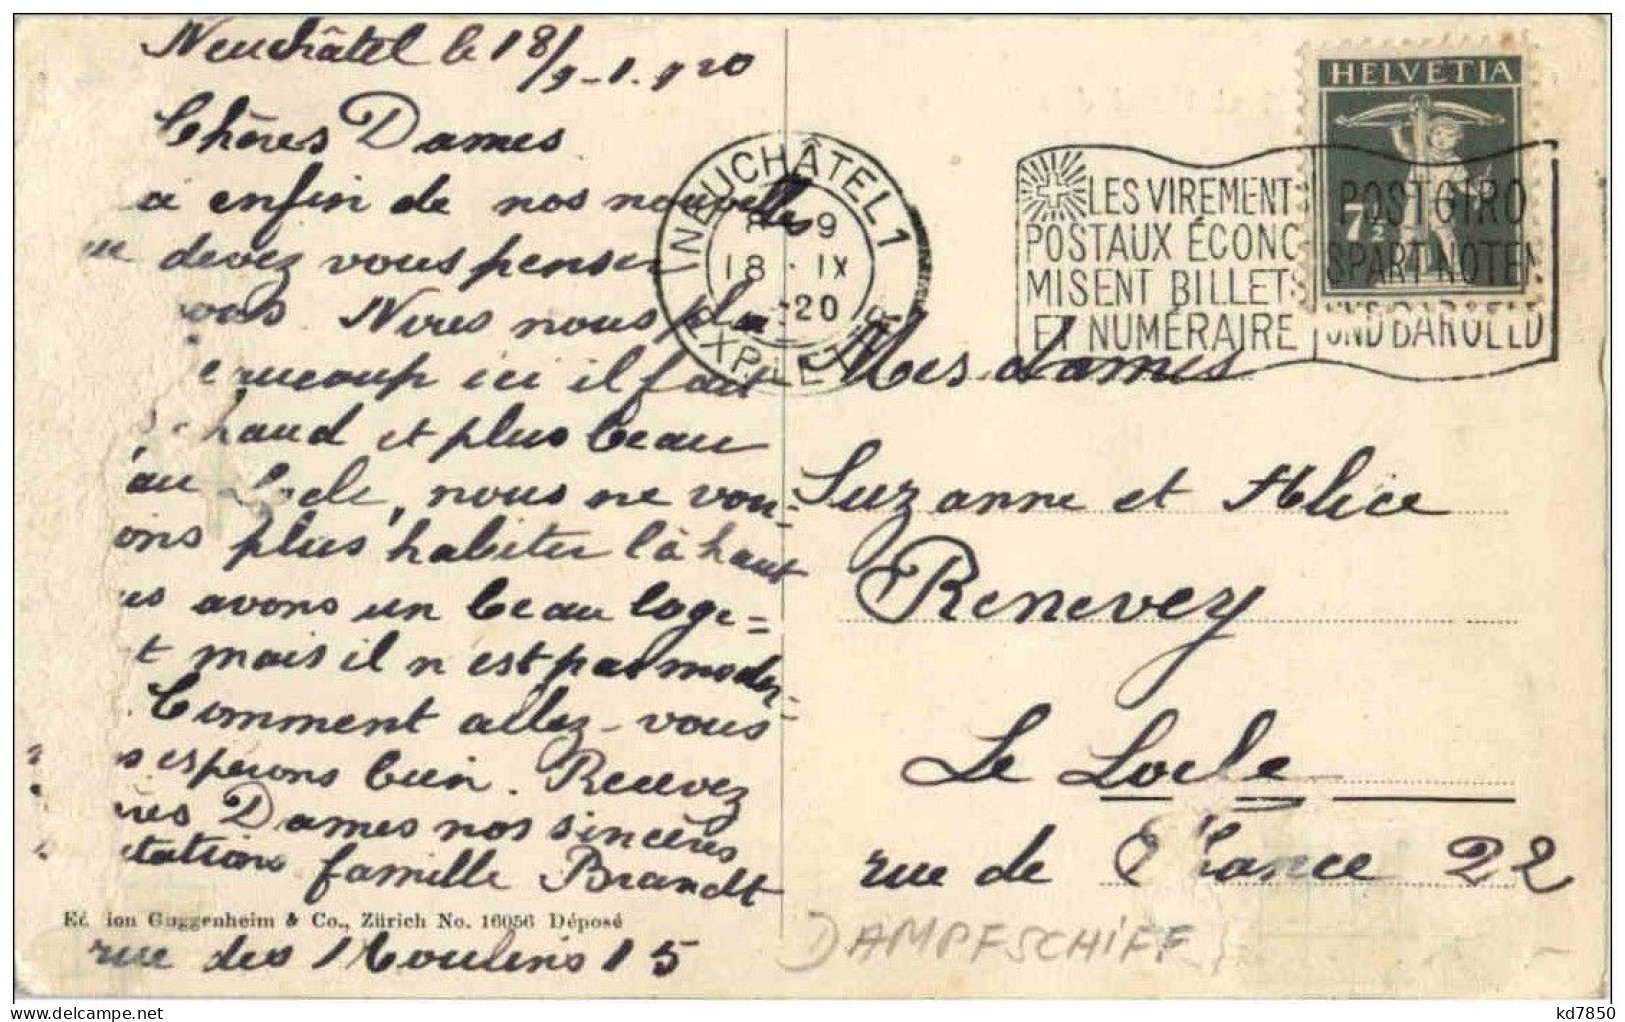 Neuchâtel le 18/9-1.920
Chères Dames
ci enfin de nos nouvelles
devez vous penser
vous. Nous nous pla
eaucoup ici il fait
chaud et plus beau
au Locle, nous ne vou=
ons plus habiter là haut
us avons un beau loge=
t mais il n'est pas moder=
Comment allez-vous
s espérons bien. Recevez
ères Dames nos sincères
utations famille Brandt
Ed ion Guggenheim & Co., Zürich No. 16056 Déposé
rue des Moulins 15
NEUCHÂTEL 1
18.IX
20
EXP. LET
LES VIREMENT
POSTAUX ÉCONO
MISENT BILLETS
ET NUMÉRAIRE
POSTGIRO
SPART NOTEN
UND BARGELD
HELVETIA
7½
Mesdames
Suzanne et Alice
Renevey
Le Locle
rue de France 22
DAMPFSCHIFF
kd7850